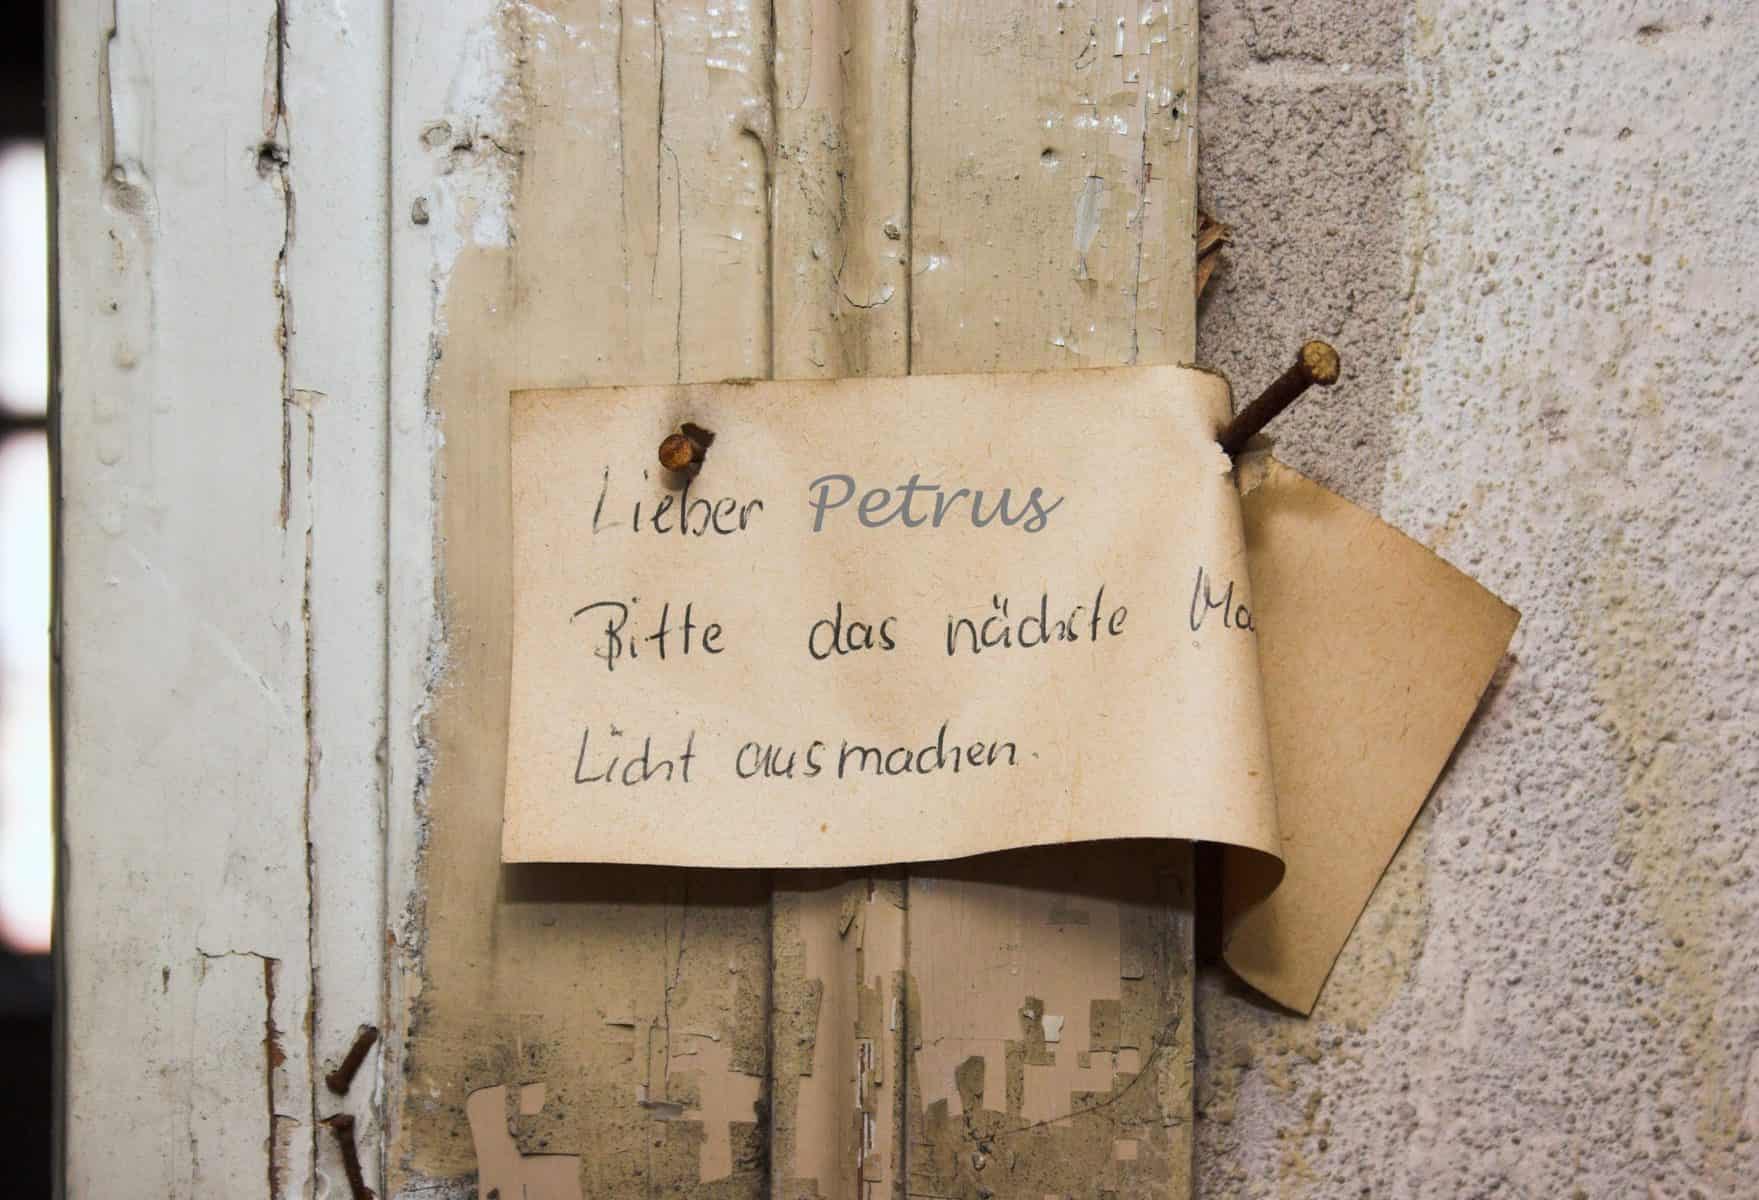 Lieber Petrus
Bitte das nächste Ma
Licht ausmachen.